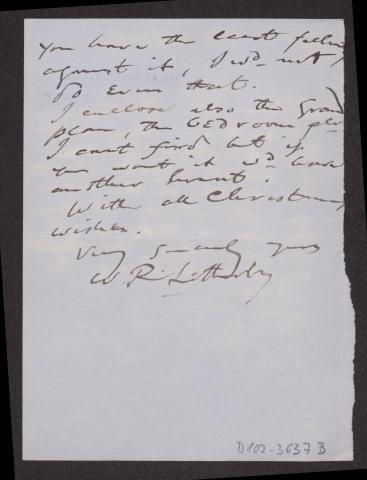 you have the least feeling
against it, I wd. not
do even that.
I enclose also the Ground
plan, the bedroom pln
I cant find but if
you want it wd. have
another hunt.
With all Christmas
wishes.
Very sincerely yours
W. R. Lethaby
D102-3637 B